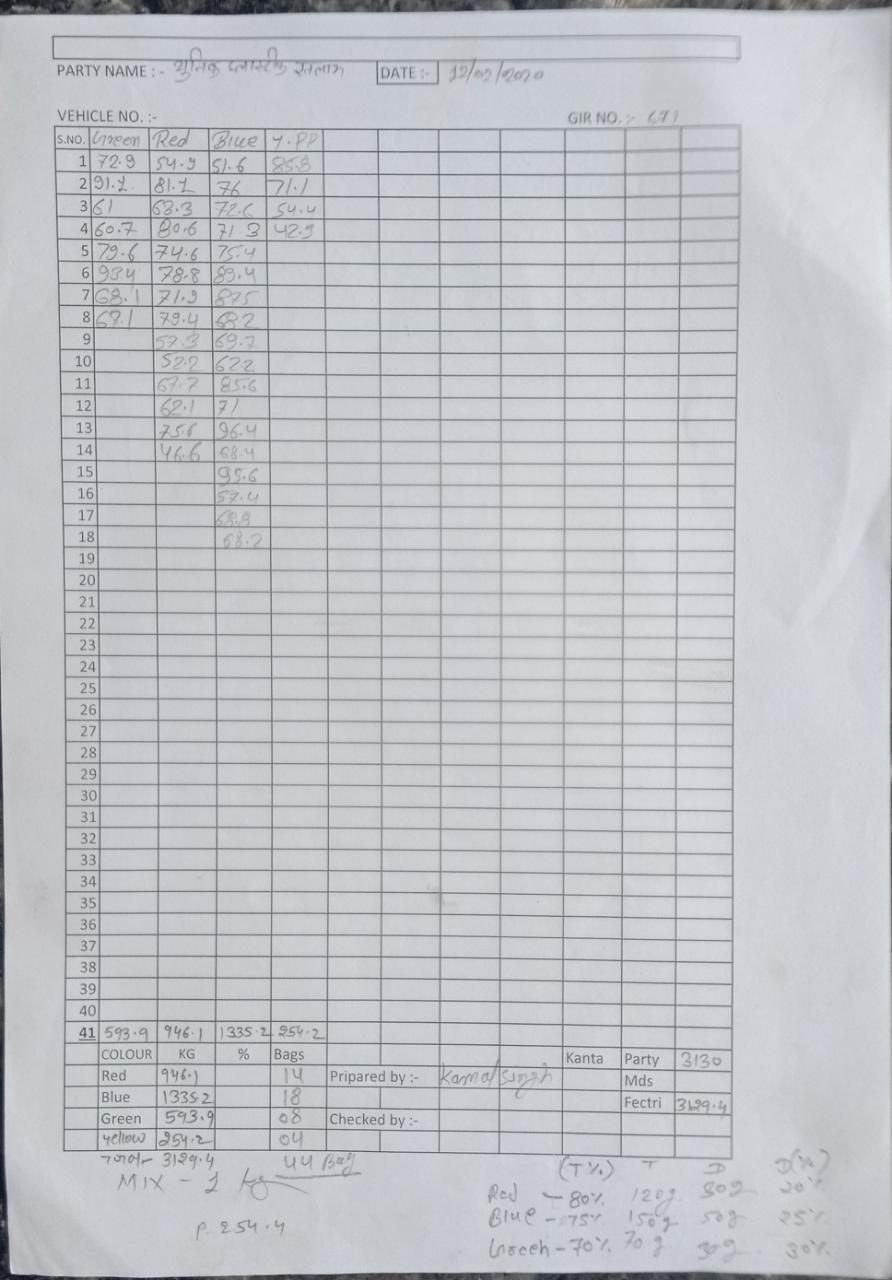 PARTY NAME :- युनिक प्लास्टीक रतलाम DATE :- 12/02/2020
VEHICLE NO. :- GIR NO. :- 671
S.NO. Green Red Blue Y.PP
1 72.9 54.9 51.6 85.8
2 91.2 81.2 76 71.1
3 61 63.3 72.6 54.4
4 60.7 80.6 71.3 42.9
5 79.6 74.6 75.4
6 93.4 78.8 89.4
7 68.1 71.9 87.5
8 67.1 79.4 68.2
9 57.3 69.7
10 52.2 62.2
11 67.7 85.6
12 62.1 71
13 75.6 96.4
14 46.6 68.4
15 95.6
16 57.4
17 68.8
18 68.2
19
20
21
22
23
24
25
26
27
28
29
30
31
32
33
34
35
36
37
38
39
40
41 593.9 946.1 1335.2 254.2
COLOUR KG % Bags Kanta Party 3130
Red 946.1 14 Pripared by :- Kamal Singh Mds
Blue 1335.2 18 Fectri 3129.4
Green 593.9 08 Checked by :-
Yellow 254.2 04
3129.4 44 Bag (T%) T D D(%)
MIX - 1 kg Red - 80% 120g 30g 20%
P. 254.4 Blue - 75% 150g 50g 25%
Green - 70% 70g 30g 30%